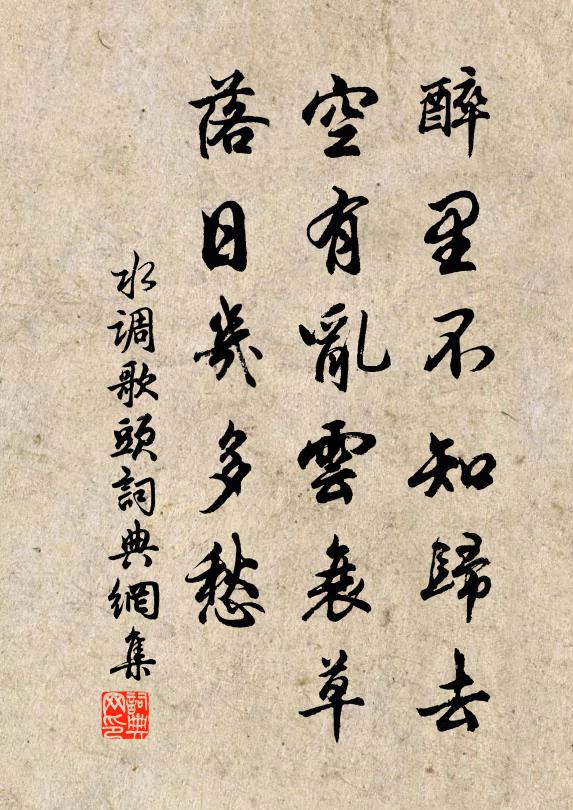 醉里不知歸去
空有亂雲衰草
落日幾多愁
水调歌頭詞典網集
詞典网印